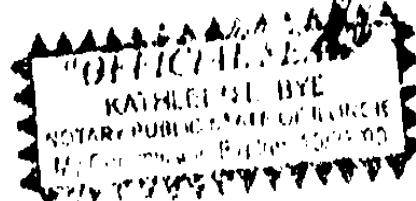 "OFFICIAL SEAL"
KATHLEEN L. BYE
NOTARY PUBLIC STATE OF ILLINOIS
My Commission Expires